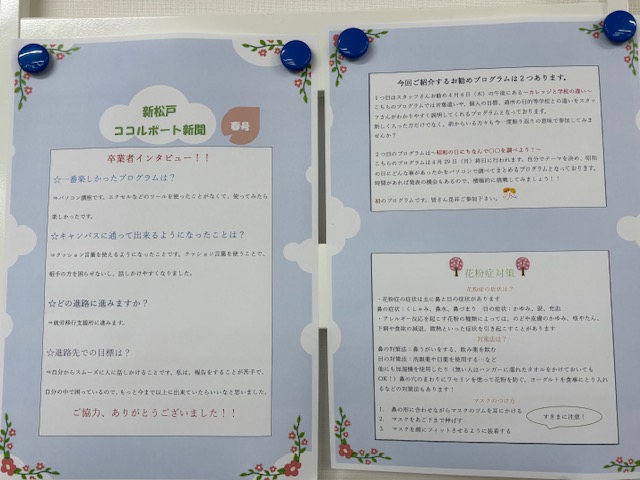 新松戸
ココルポート新聞
春号
卒業者インタビュー！！
☆一番楽しかったプログラムは？
⇒パソコン講座です。エクセルなどのツールを使ったことがなくて、使ってみたら
楽しかったです。
☆キャンパスに通って出来るようになったことは？
⇒クッション言葉を使えるようになったことです。クッション言葉を使うことで、
相手の方を困らせないし、話しかけやすくなりました。
☆どの進路に進みますか？
⇒就労移行支援所に進みます。
☆進路先での目標は？
⇒自分からスムーズに人に話しかけることです。私は、報告をすることが苦手で、
自分の中で困っているので、もっと今まで以上に出来ていたらいいなと思いました。
ご協力、ありがとうございました！！
今回ご紹介するお勧めプログラムは２つあります。
１つ目はスタッフさんお勧め４月６日（木）の午後にある～カレッジと学校の違い～
こちらのプログラムでは言葉遣いや、個人の目標、通所の目的等学校との違いをスタッ
フさんがわかりやすく説明してくれるプログラムとなっております。
新しく入った方だけでなく、前からいる方々も今一度振り返りの意味で参加してみま
せんか？
２つ目のプログラムは～昭和の日にちなんで〇〇を調べよう！～
こちらのプログラムは４月29日（月）終日に行われます。自分でテーマを決め、昭和
の日にどんな事があったかをパソコンで調べてまとめるプログラムとなっております。
時間があれば発表の機会もあるので、積極的に挑戦してみましょう！！
初のプログラムです。皆さん是非ご参加下さい。
花粉症対策
花粉症の症状は？
・花粉症の症状は主に鼻と目の症状があります
鼻の症状：くしゃみ、鼻水、鼻づまり　目の症状：かゆみ、涙、充血
・アレルギー反応を起こす花粉の種類によっては、のどや皮膚のかゆみ、咳やたん、
下痢や食欲の減退、微熱といった症状を引き起こすことがあります
対策法は？
鼻の対策法：鼻うがいをする、飲み薬を飲む
目の対策法：洗眼薬や目薬を使用する…など
他にも加湿機を使用したり（無い人はハンガーに濡れたタオルをかけておいても
OK！）鼻の穴のまわりにワセリンを使って花粉を防ぐ、ヨーグルトを食事にとり入れ
るなどの対策法もあります！
マスクのつけ方
1. 鼻の形に合わせながらマスクのゴムを耳にかける
2. マスクをあご下まで伸ばす
3. マスクを顔にフィットさせるように装着する
すきまに注意！